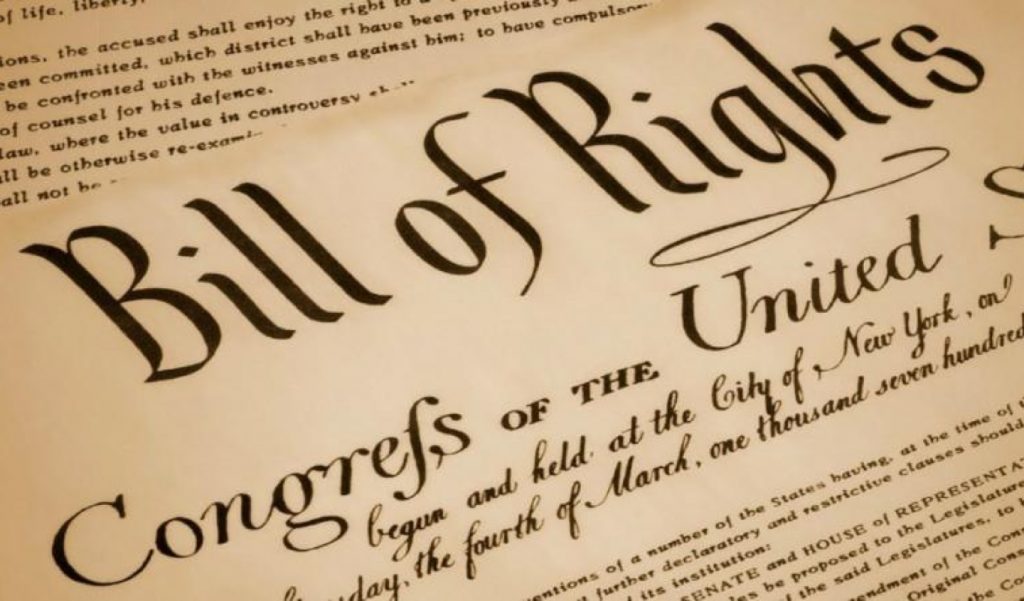 of life, liberty,
ions, the accused shall enjoy the right to a
een committed, which district shall have been previously
be confronted with the witnesses against him; to have
of counsel for his defence.
law, where the value in controversy
ll be otherwise
all not be
Bill of Rights
Congreſs OF THE United S
begun and held at the City of New York, on
the fourth of March, one thousand seven hundred
of a number of the States having, at the time of
further declaratory and restrictive clauses should
its institution:
SENATE and HOUSE of
be proposed to the
of the said Legislatures, to
of the
Original